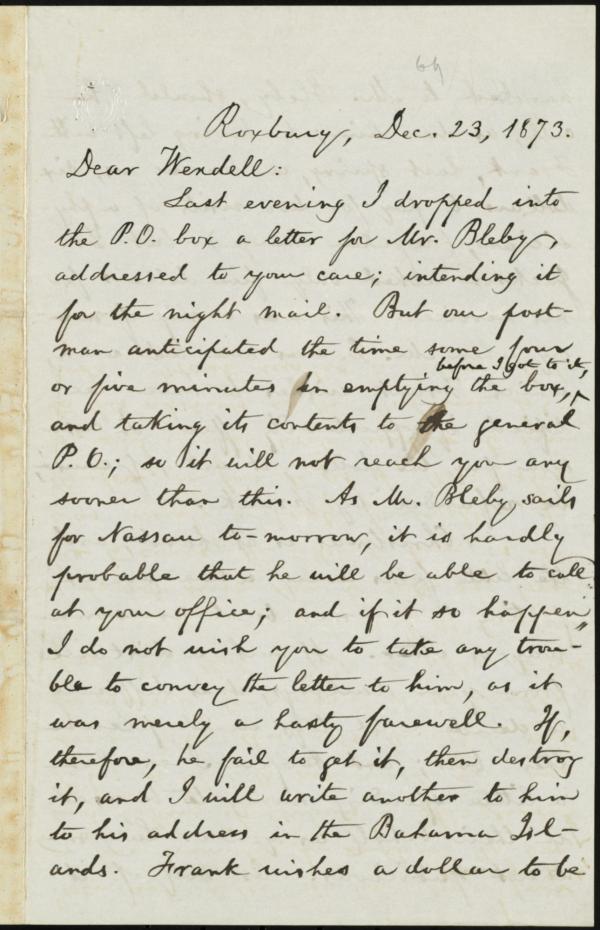 64
Roxbury, Dec. 23, 1873.
Dear Wendell:
Last evening I dropped into
the P.O. box a letter for Mr. Bleby,
addressed to your care; intending it
for the night mail. But our post-
man anticipated the time some four
before I got to it,
or five minutes in emptying the box,
and taking its contents to the general
P. O.; so it will not reach you any
sooner than this. As Mr. Bleby sails
for Nassau to-morrow, it is hardly
probable that he will be able to call
at your office; and if it so happen,
I do not wish you to take any trou-
ble to convey the letter to him, as it
was merely a hasty farewell. If,
therefore, he fail to get it, then destroy
it, and I will write another to him
to his address in the Bahama Isl-
ands. Frank wishes a dollar to be